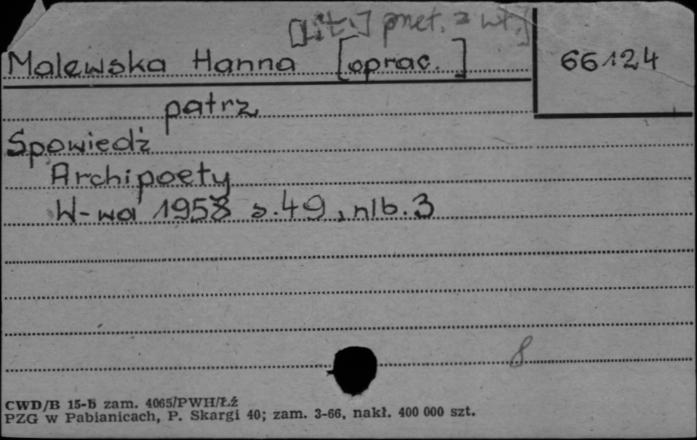 [Lit.] pnet. z wt.]
Malewska Hanna [oprac.]
66124
patrz
Spowiedź
Archipoety
W-wa 1958 s.49, nlb.3
8
CWD/B 15-B zam. 4065/PWH/Łź
PZG w Pabianicach, P. Skargi 40; zam. 3-66, nakł. 400 000 szt.